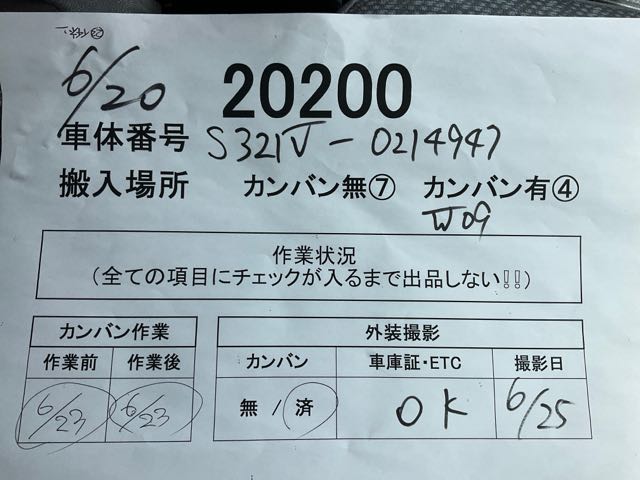 6/20 20200
車体番号 S321V-0214947
搬入場所 カンバン無⑦ カンバン有④
W09
作業状況
(全ての項目にチェックが入るまで出品しない!!)
カンバン作業 外装撮影
作業前 作業後 カンバン 車庫証・ETC 撮影日
6/23 6/23 無 / 済 OK 6/25